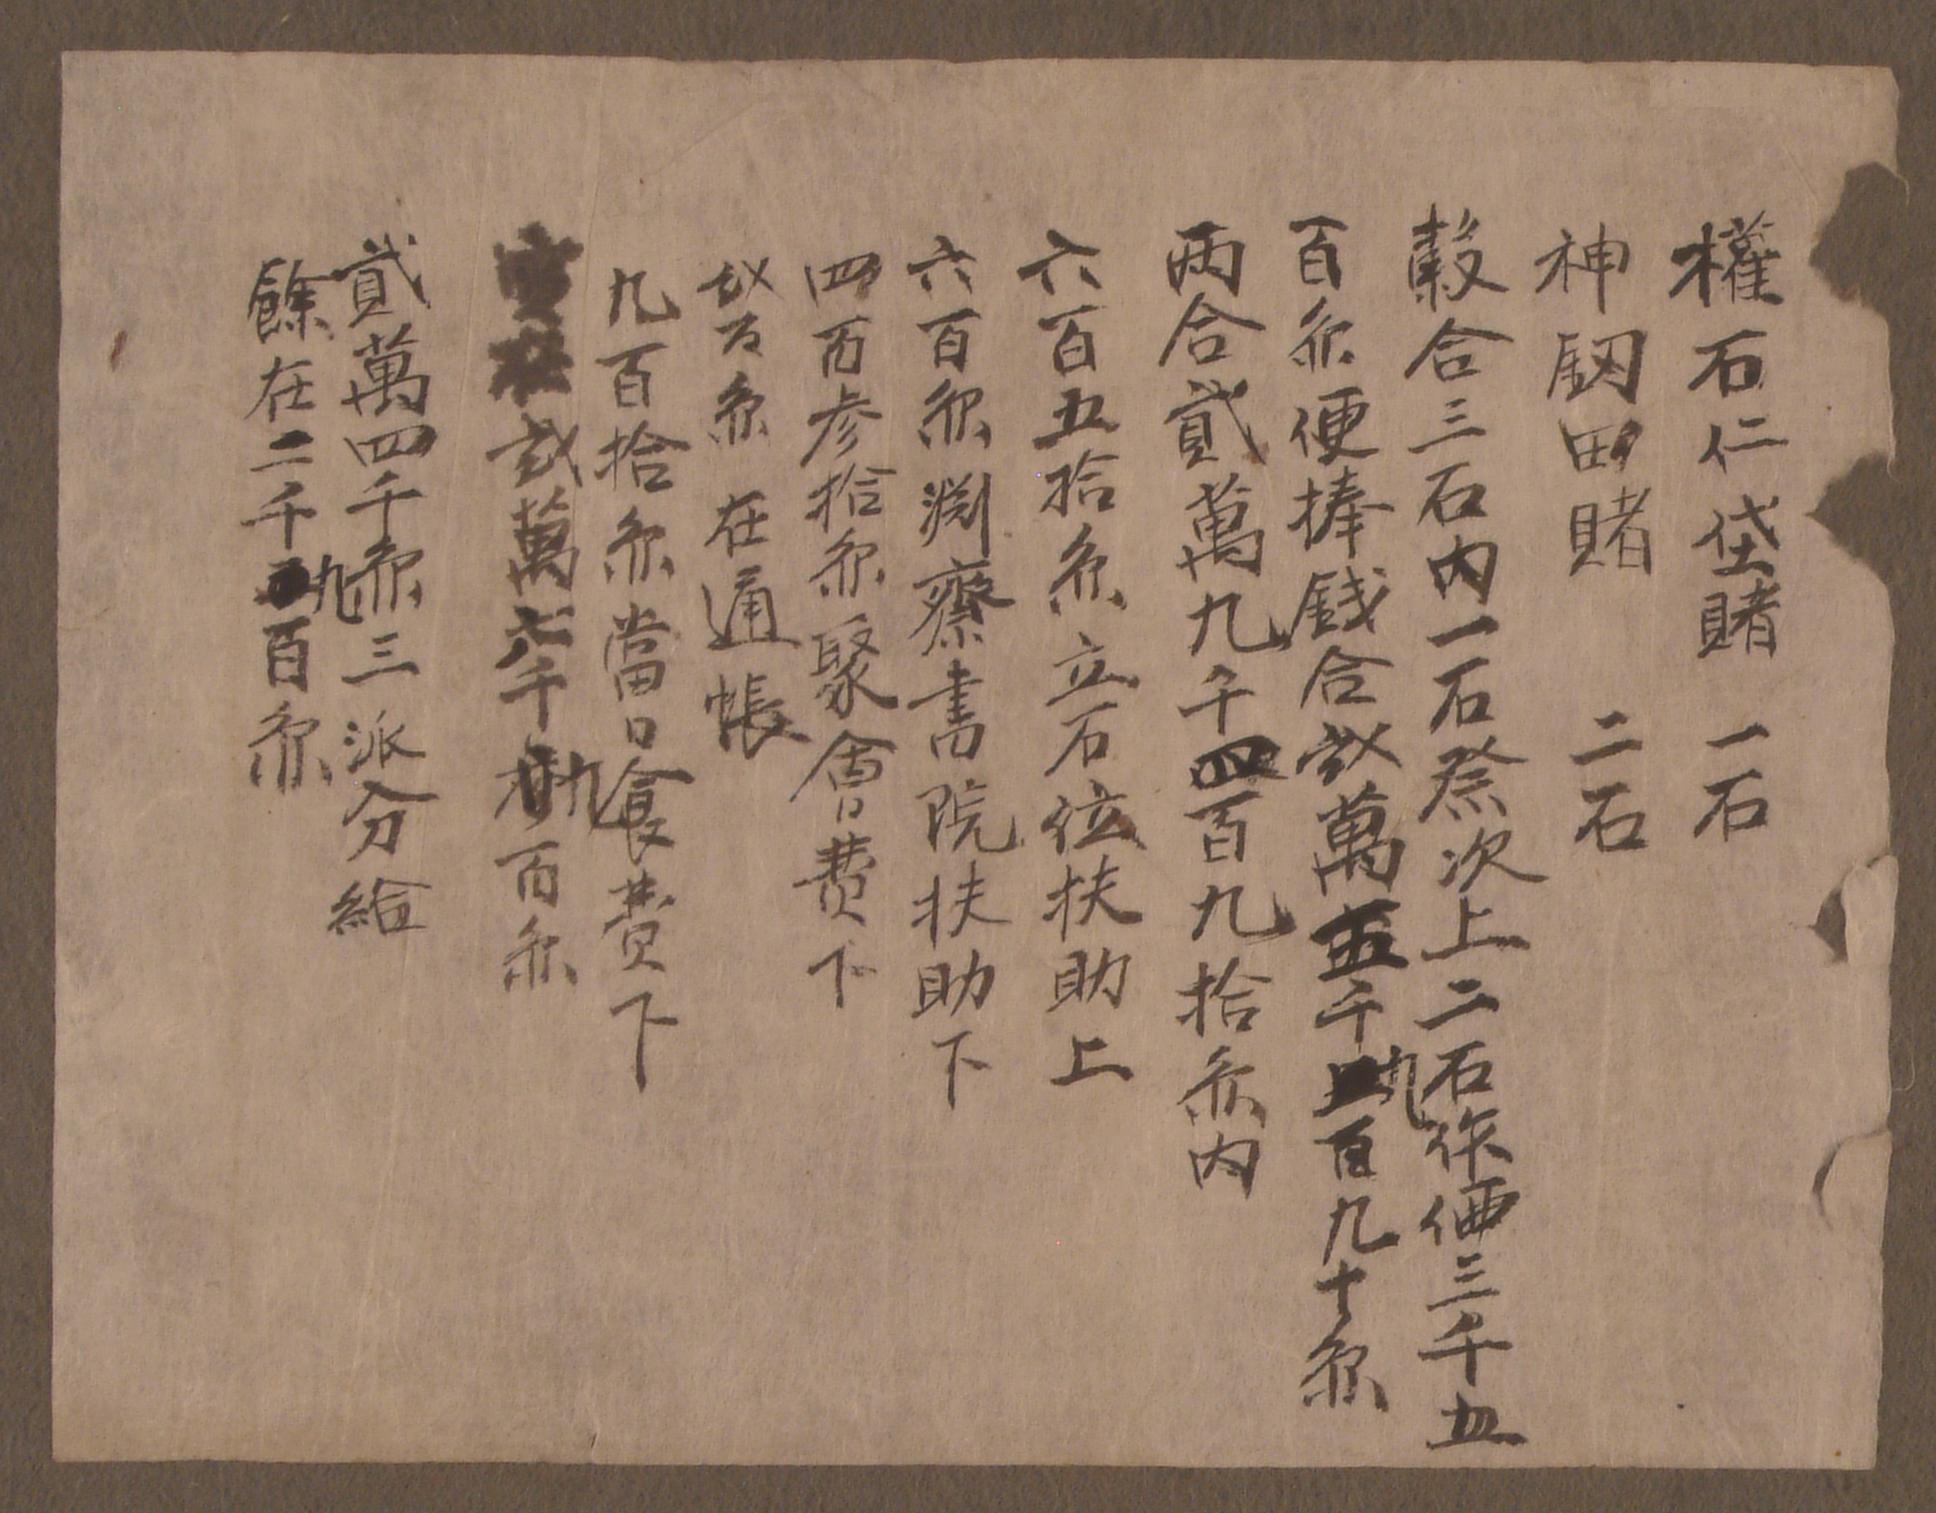 權石仁垈賭 一石
神釼田賭 二石
穀合三石內一石祭次上二石作価三千五
百尒便捧錢合貳萬五千九百九十尒
兩合貳萬九千四百九拾尒內
六百五拾尒立石位扶助上
六百尒淵齋書院扶助下
四百參拾尒聚會費下
貳百尒 在通帳
九百拾尒當日食費下
貳萬六千九百尒
貳萬四千尒三派分給
餘在二千九百尒